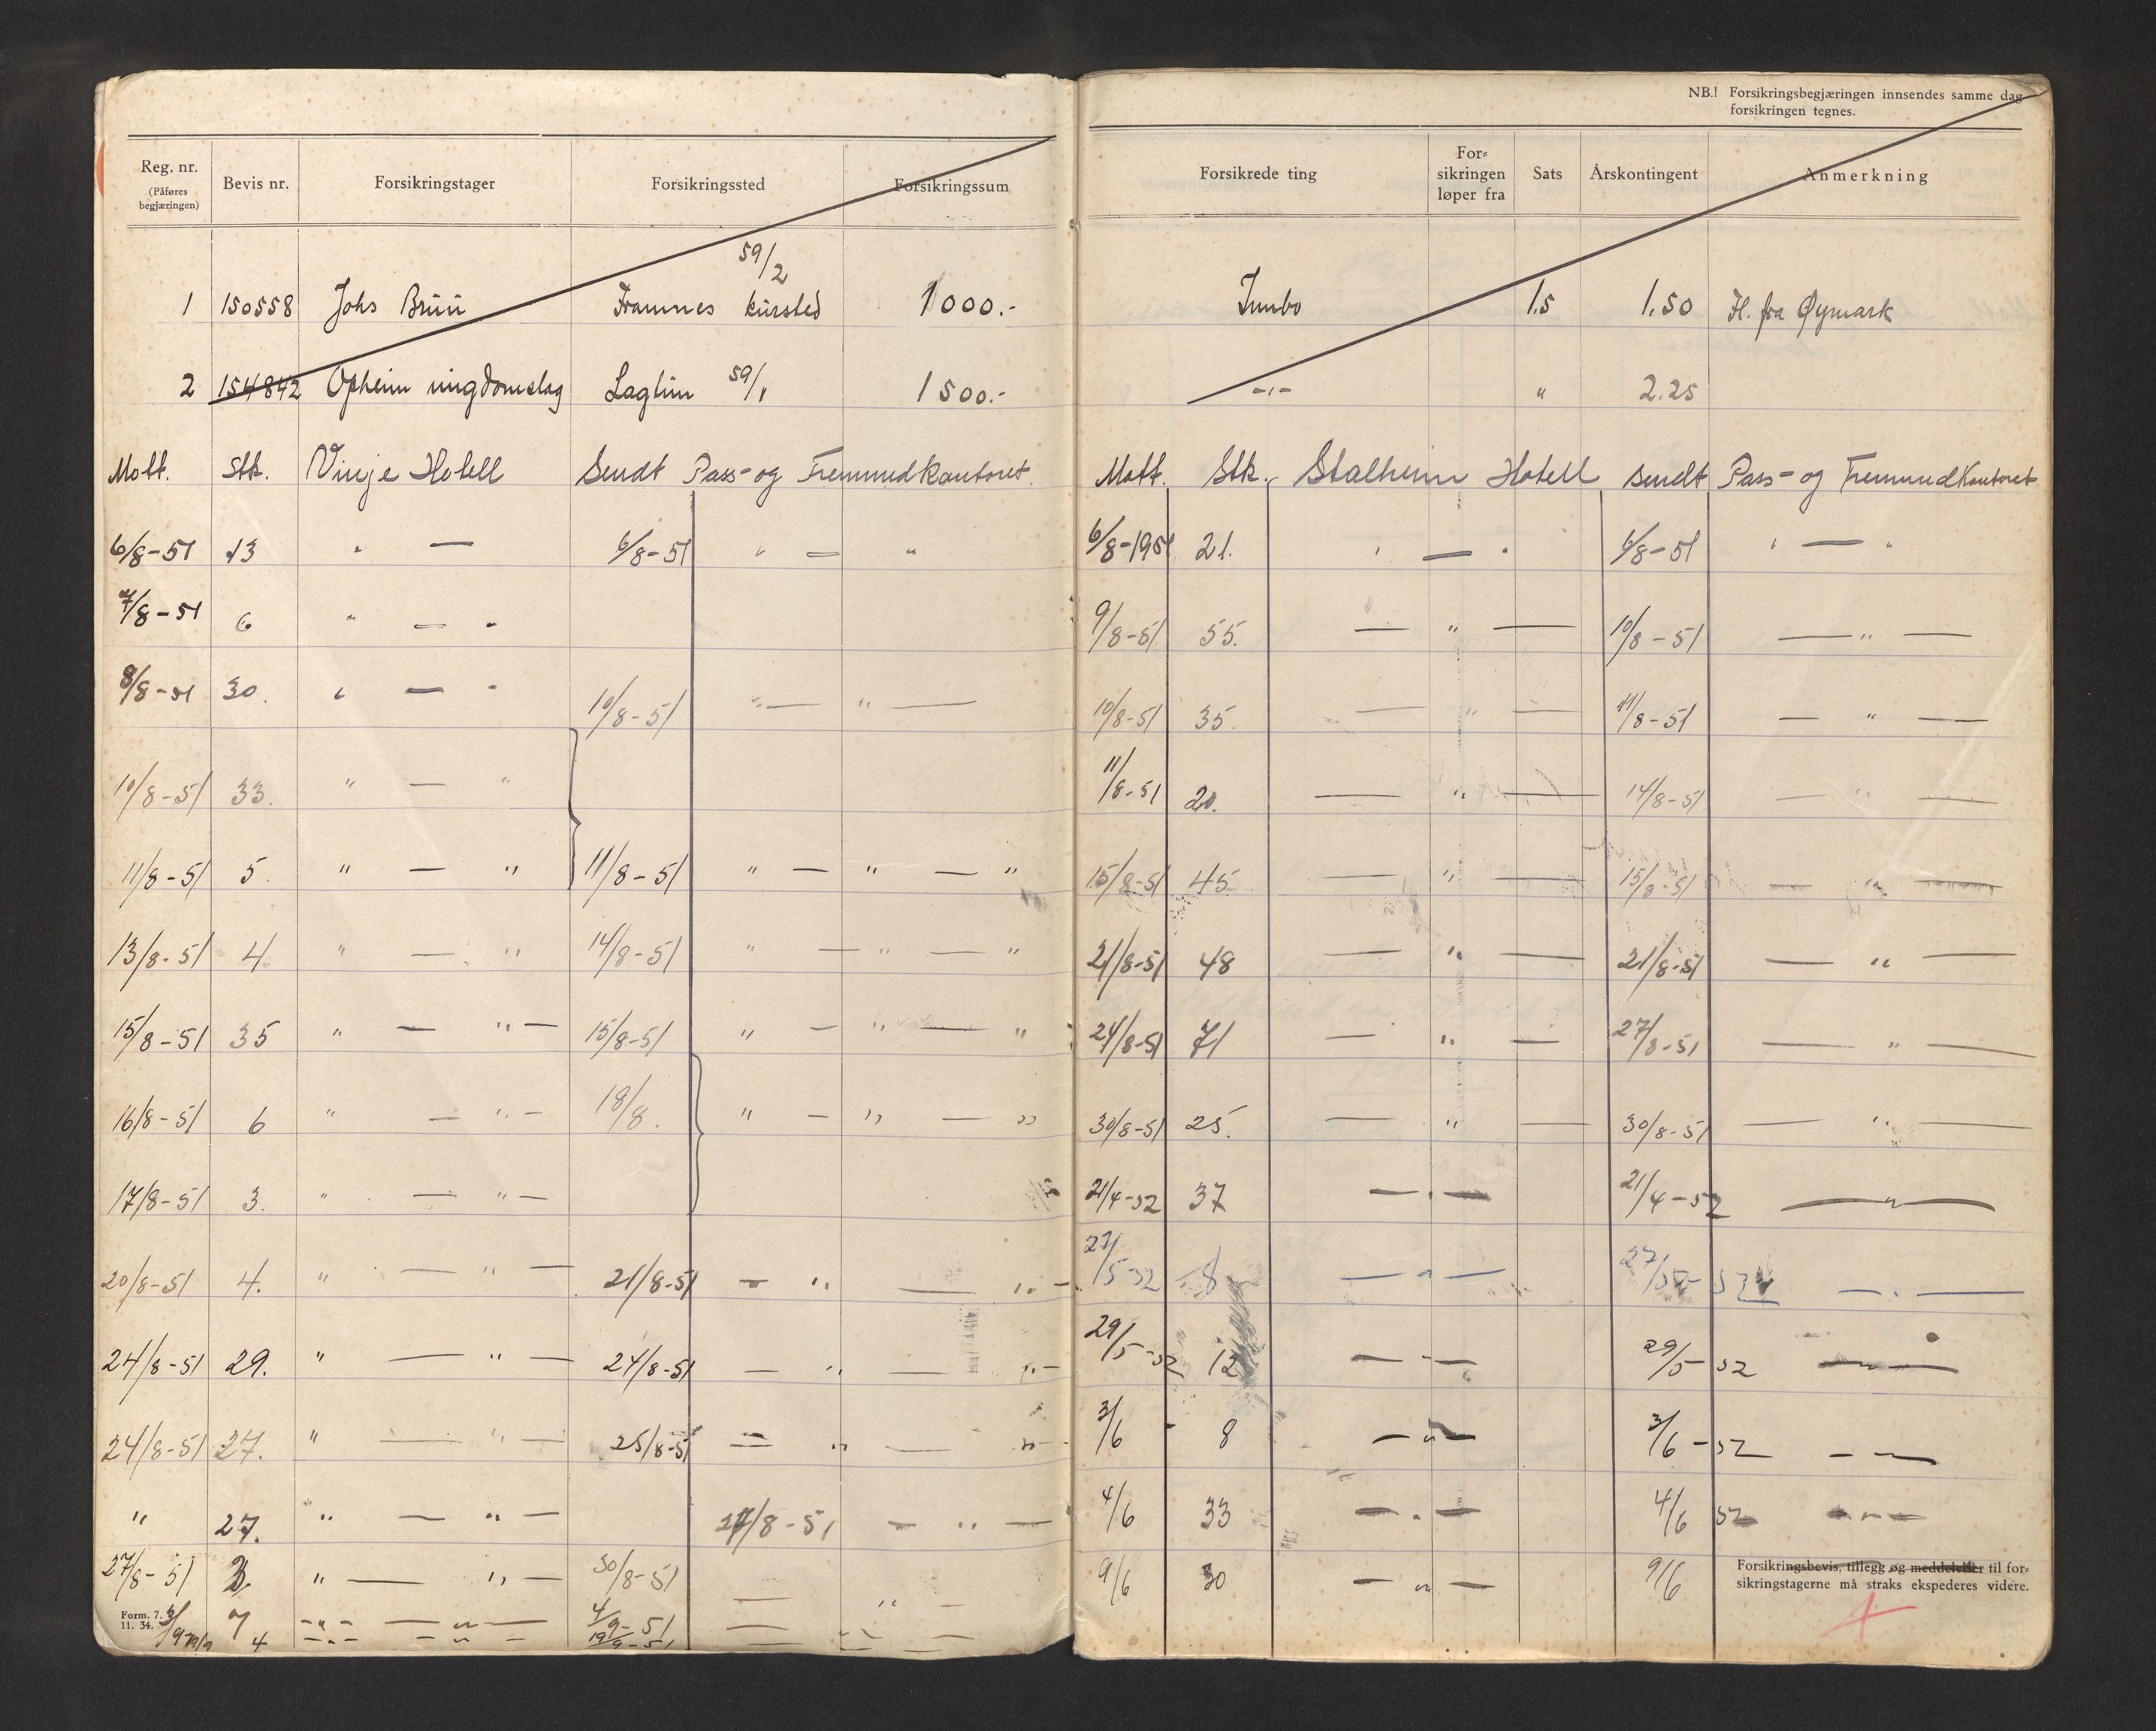 Reg. nr. (Påføres begjæringen) Bevis nr. Forsikringstager Forsikringssted Forsikringssum
59/2
1 150558 Johs Brün Framnes kürsted 1000.-
2 154842 Opheim ungdomslag Laglün 59/1 1500.-
Mott. Stk. Vinje Hotell Sendt Pass- og Fremmedkontoret.
6/8-51 13 " — 6/8-51 " — "
7/8-51 6 " — "
8/8-51 30. " — " 10/8-51 " — " —
10/8-51 33. " — "
11/8-51 5. " — " 11/8-51 " — " — "
13/8-51 4 " — " 14/8-51 " — " — "
15/8-51 35 " — " — 15/8-51 " — " — "
16/8-51 6 " — " — 18/8. " — " — "
17/8-51 3. " — " —
20/8-51 4. " — " — 21/8-51 — " — " —
24/8-51 29. " — " — 24/8-51 — " — " —
24/8-51 27. " — " — 25/8-51 — " — " —
" 27. " — " — 27/8-51 — " —
27/8-51 " — " — 30/8-51 — " —
Form. 7. 7 — " — — " — 4/9-51 — " —
11. 34. 4 — " — — " — 19/9-51 — " —
NB.! Forsikringsbegjæringen innsendes samme dag
forsikringen tegnes.
Forsikrede ting For-sikringen løper fra Sats Årskontingent Anmerkning
Innbo 1.5 1.50 Fl. fra Øymark
— " — " 2.25
Mott. Stk. Stalheim Hotell sendt Pass- og Fremmedkontoret
6/8-1951 21. " — " 6/8-51 " — "
9/8-51 55. — " — 10/8-51 — " —
10/8-51 35. — " — 11/8-51 — " —
11/8-51 20. — " — 14/8-51 — " —
15/8-51 45. — " — 15/8-51 — " —
21/8-51 48 — " — 21/8-51 — " —
24/8-51 71 — " — 27/8-51 — " —
30/8-51 25. — " — 30/8-51 — " —
21/4-52 37 — " — 21/4-52 — " —
27/5-52 8 — " — 27/5-52 — " —
29/5-52 12 — " — 29/5-52 — " —
3/6 - 8 — " — 3/6-52 — " —
4/6 33 — " — 4/6 52 — " —
9/6 30 — " — 9/6
Forsikringsbevis, tillegg og meddelelser til for-
sikringstagerne må straks ekspederes videre.